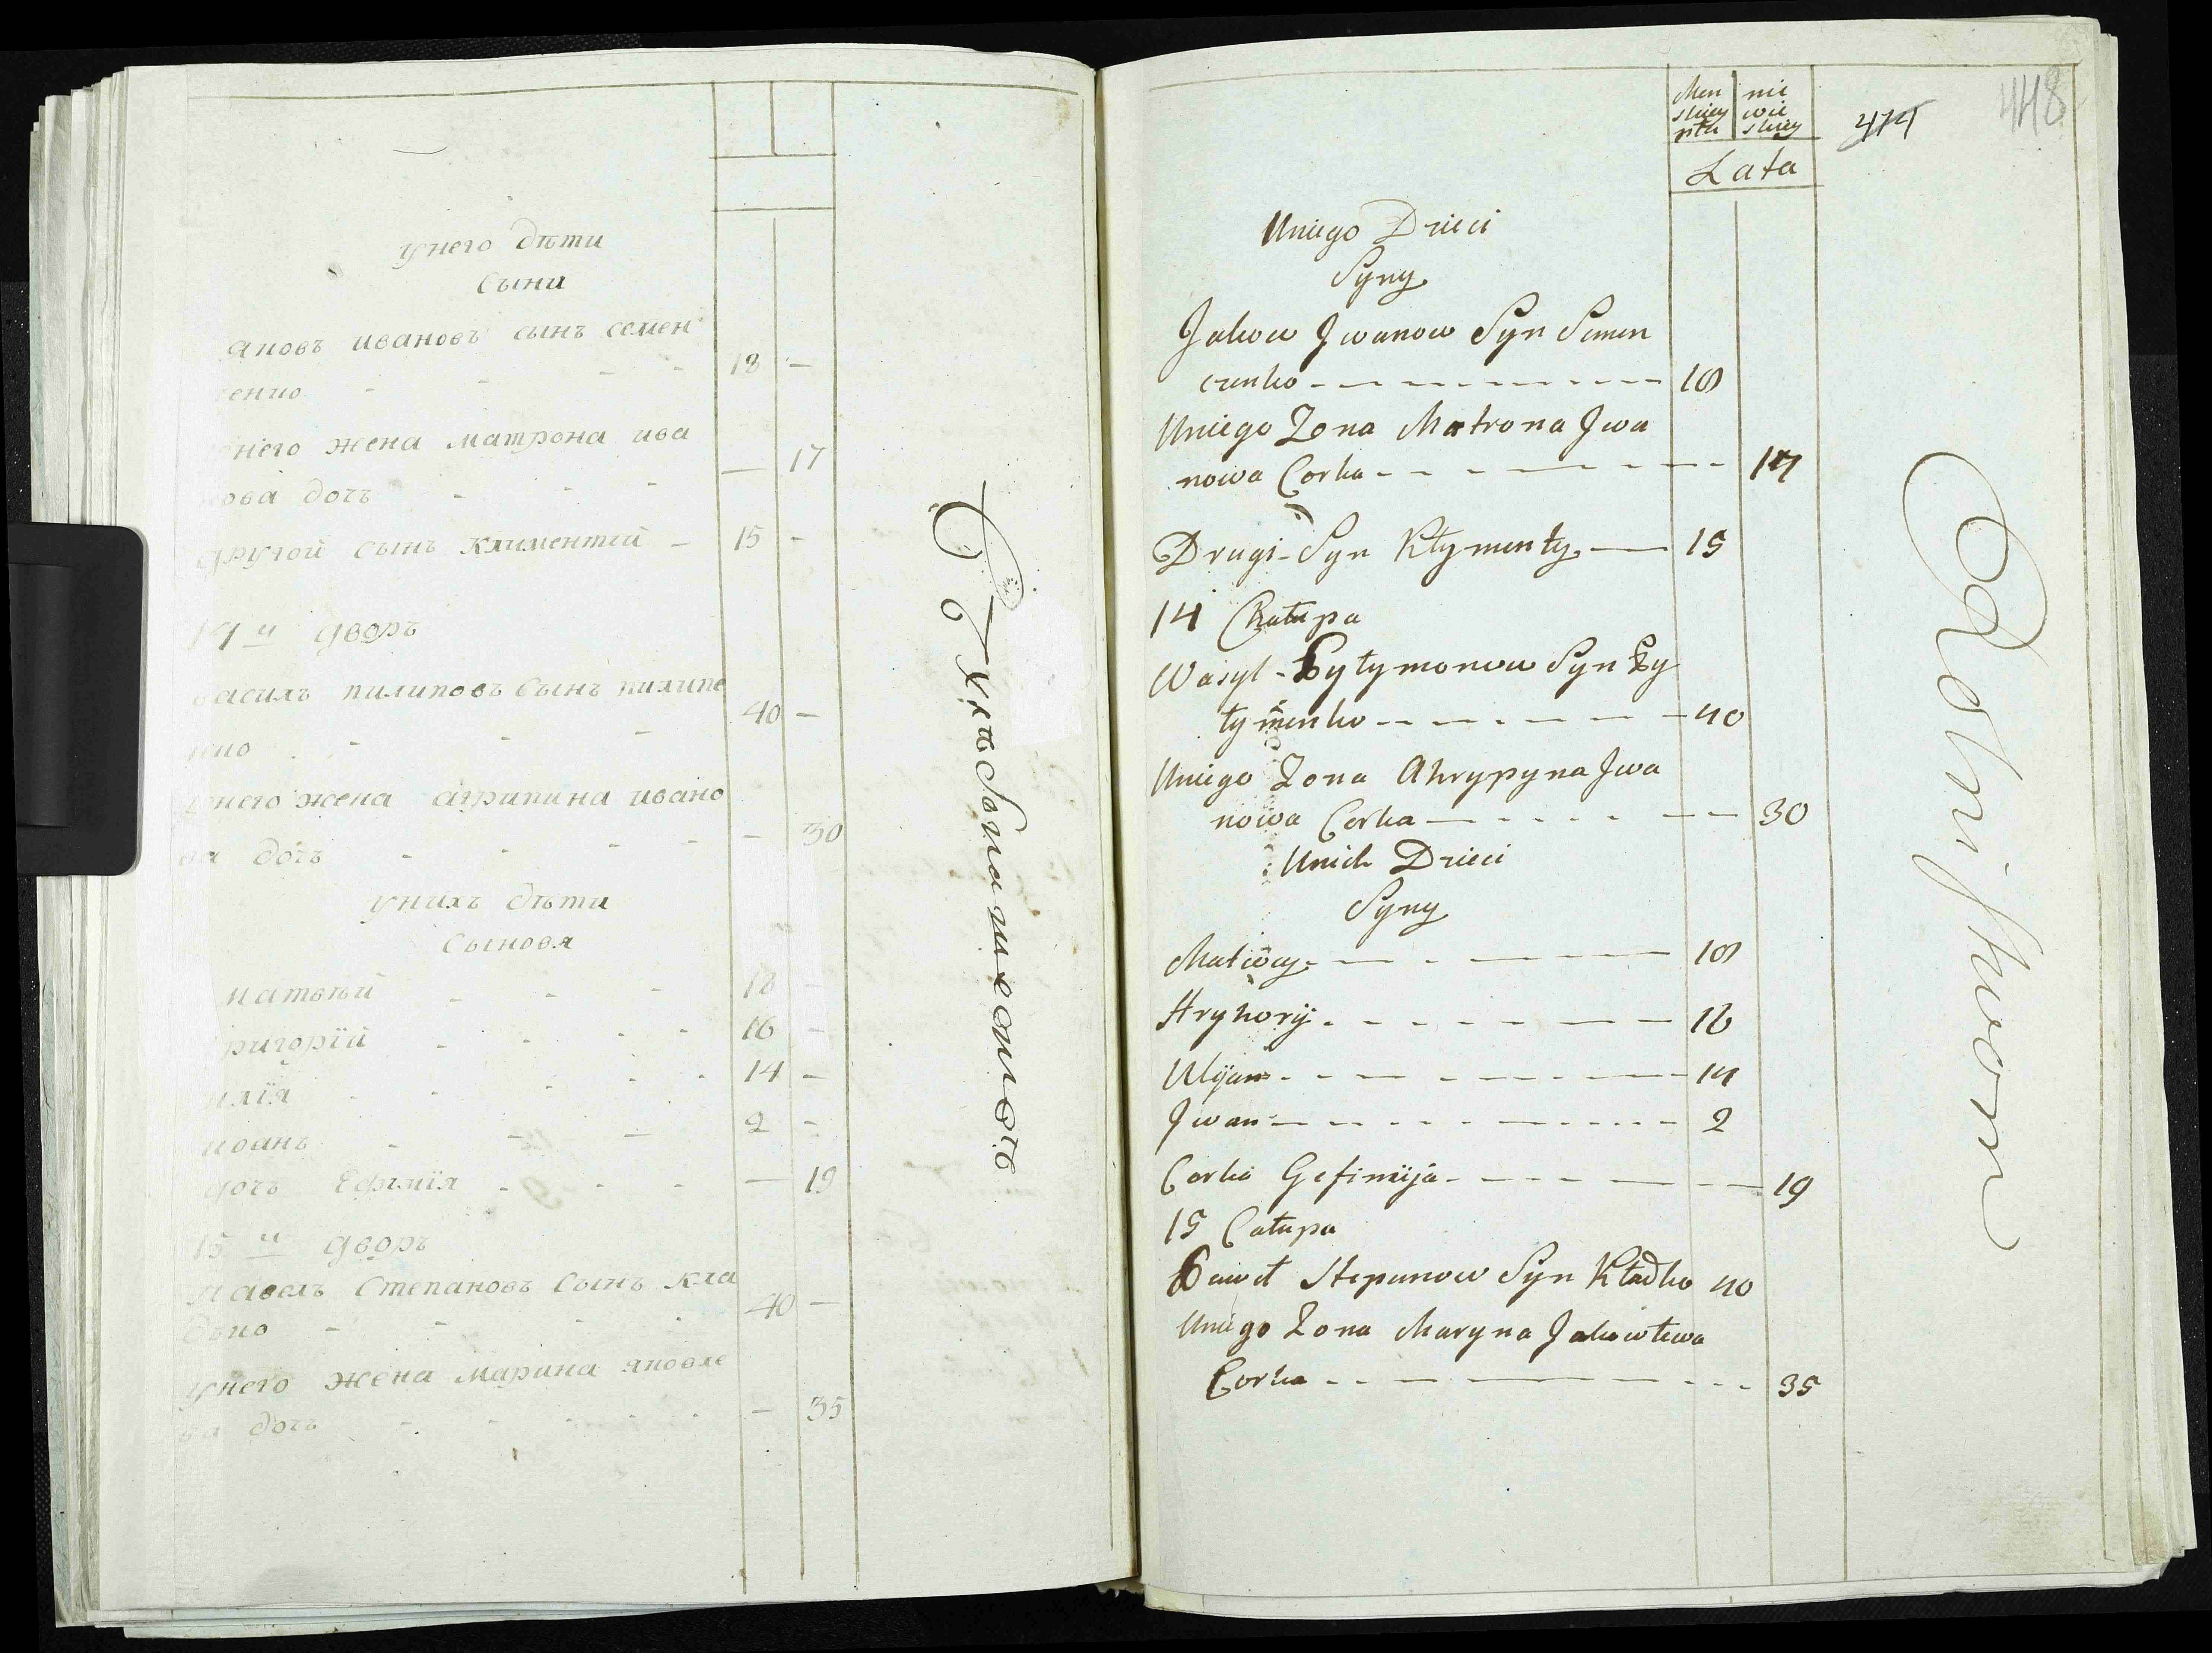 унего дѣти
Сыни
яковъ ивановъ сынъ семен
ченко - - - - 18 -
унего жена матрона ива
нова дочь - - - — 17
другой сынъ климентїй - 15 -
14й дворъ
василъ пилиповъ Сынъ пилипе
нко - - - 40 -
унего жена агрипина ивано
ва дочъ - - - - - 30
унихъ дѣти
Сыновя
матвѣй - - - 18 -
григорїй - - - - 16 -
илїя - - - - 14 -
иоанъ - - - 2 -
дочъ Ефимїя - - - — 19
15й дворъ
павелъ Степановъ Сынъ кла
дко - - - - 40 -
унего жена марина яковле
ва дочъ - - - - - - 35
Men skiey płci
nie wie skiey
Lata
474
448
Uniego Dzieci
Syny
Jakow Jwanow Syn Semen
czenko - - - - - - - - 18
Uniego Zona Matrona Jwa
nowa Corka - - - - - - - 17
Drugi Syn Kłymenty — 15
14 Chałupa
Wasyl Pyłypow Syn Py
łypenko - - - - - - 40
Uniego Zona Ahrypyna Jwa
nowa Corka - - - - - - - 30
Unich Dzieci
Syny
Matwey - - - - - 18
Hryhorij - - - - - - - 16
Ulijan - - - - - - - 14
Jwan - - - - - - - - - 2
Corka Gefimija - - - - - - - 19
15 Całupa
Paweł Stepanow Syn Kładko 40
Uniego Zona Maryna Jakowlewa
Corka - - - - - - - 35